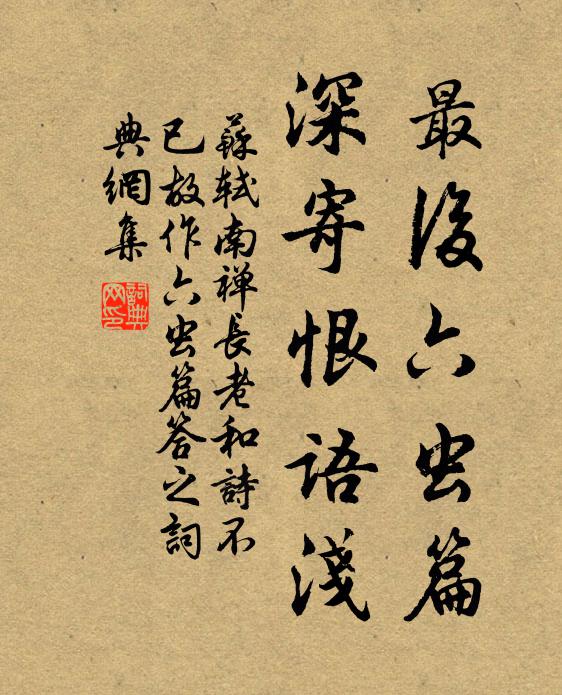 最後六虫篇
深寄恨語淺
蘇軾南禅長老和詩不
已故作六虫篇答之詞
典網集
詞典網印